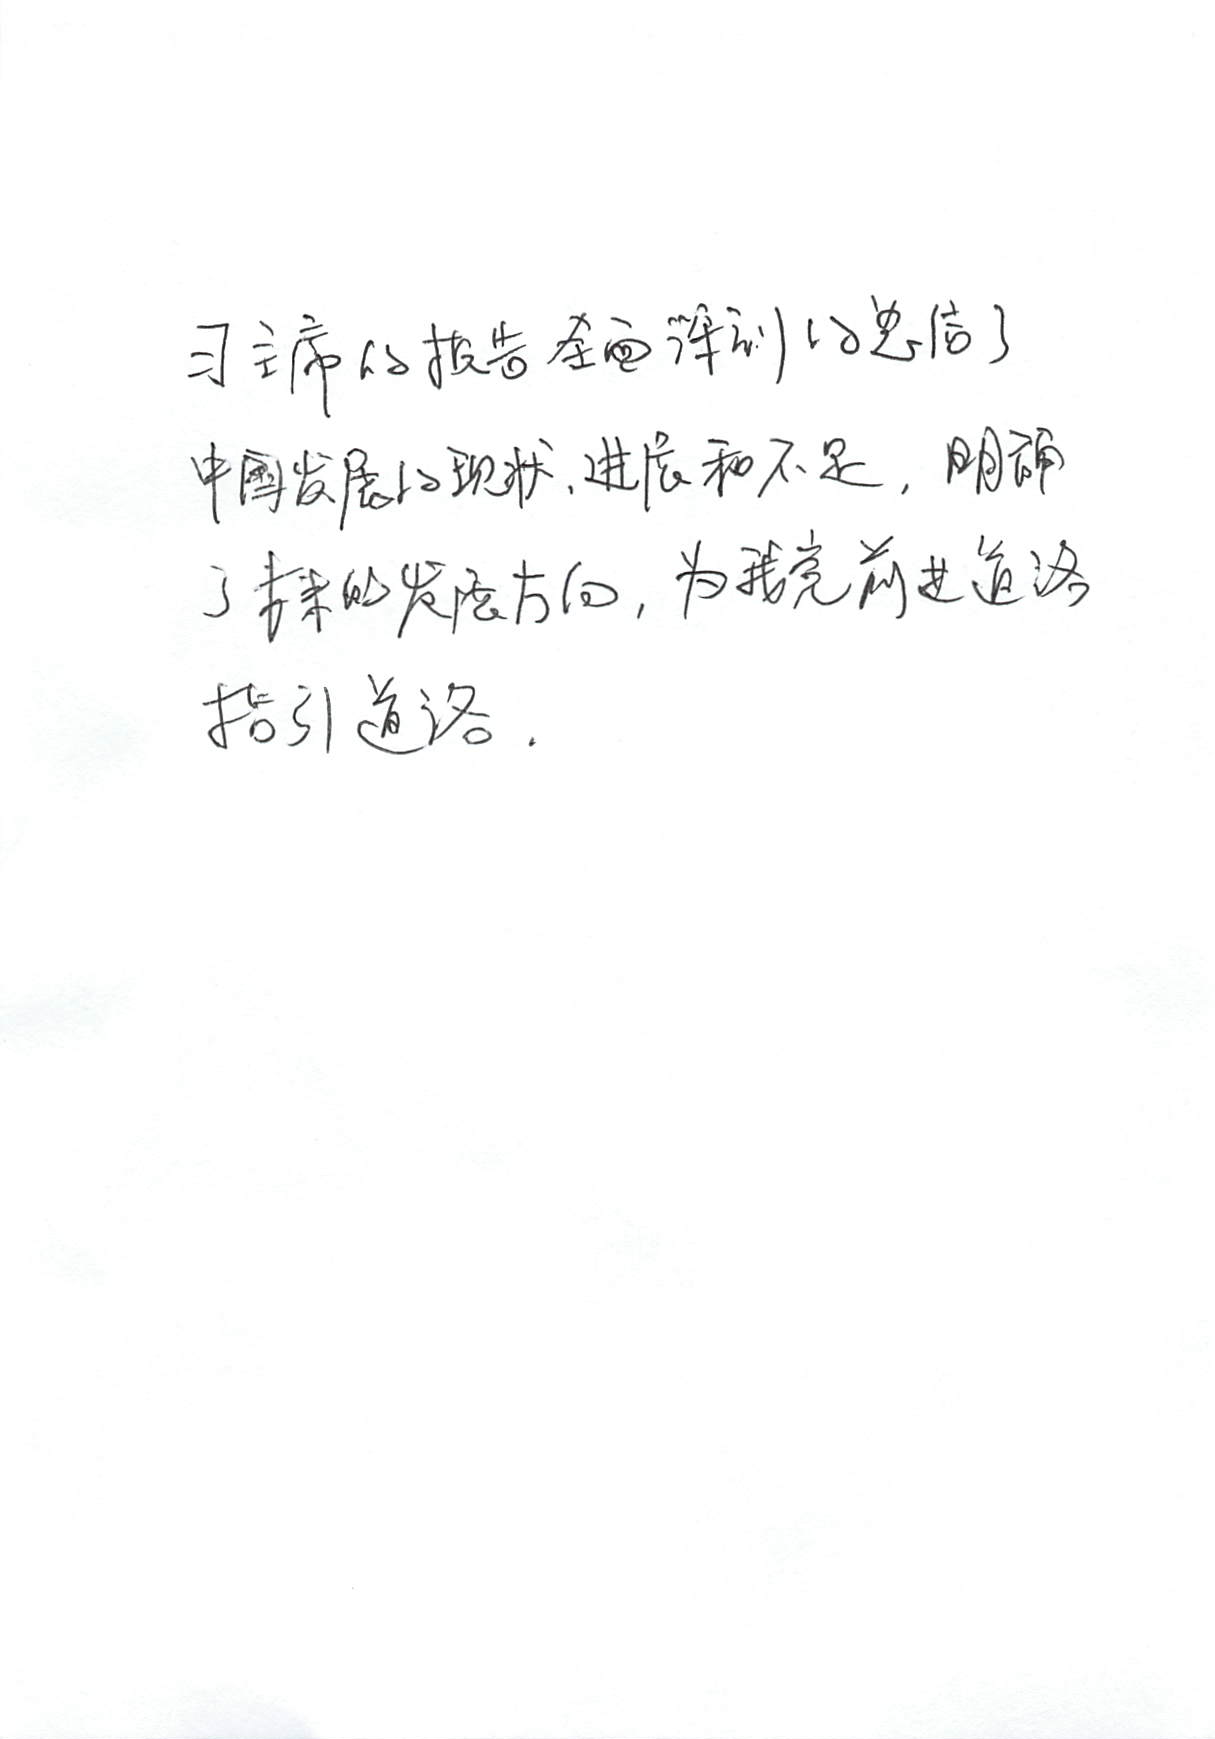 习主席的报告全面深刻的总结了
中国发展的现状、进展和不足，明确
了未来的发展方向，为我党前进道路
指引道路.